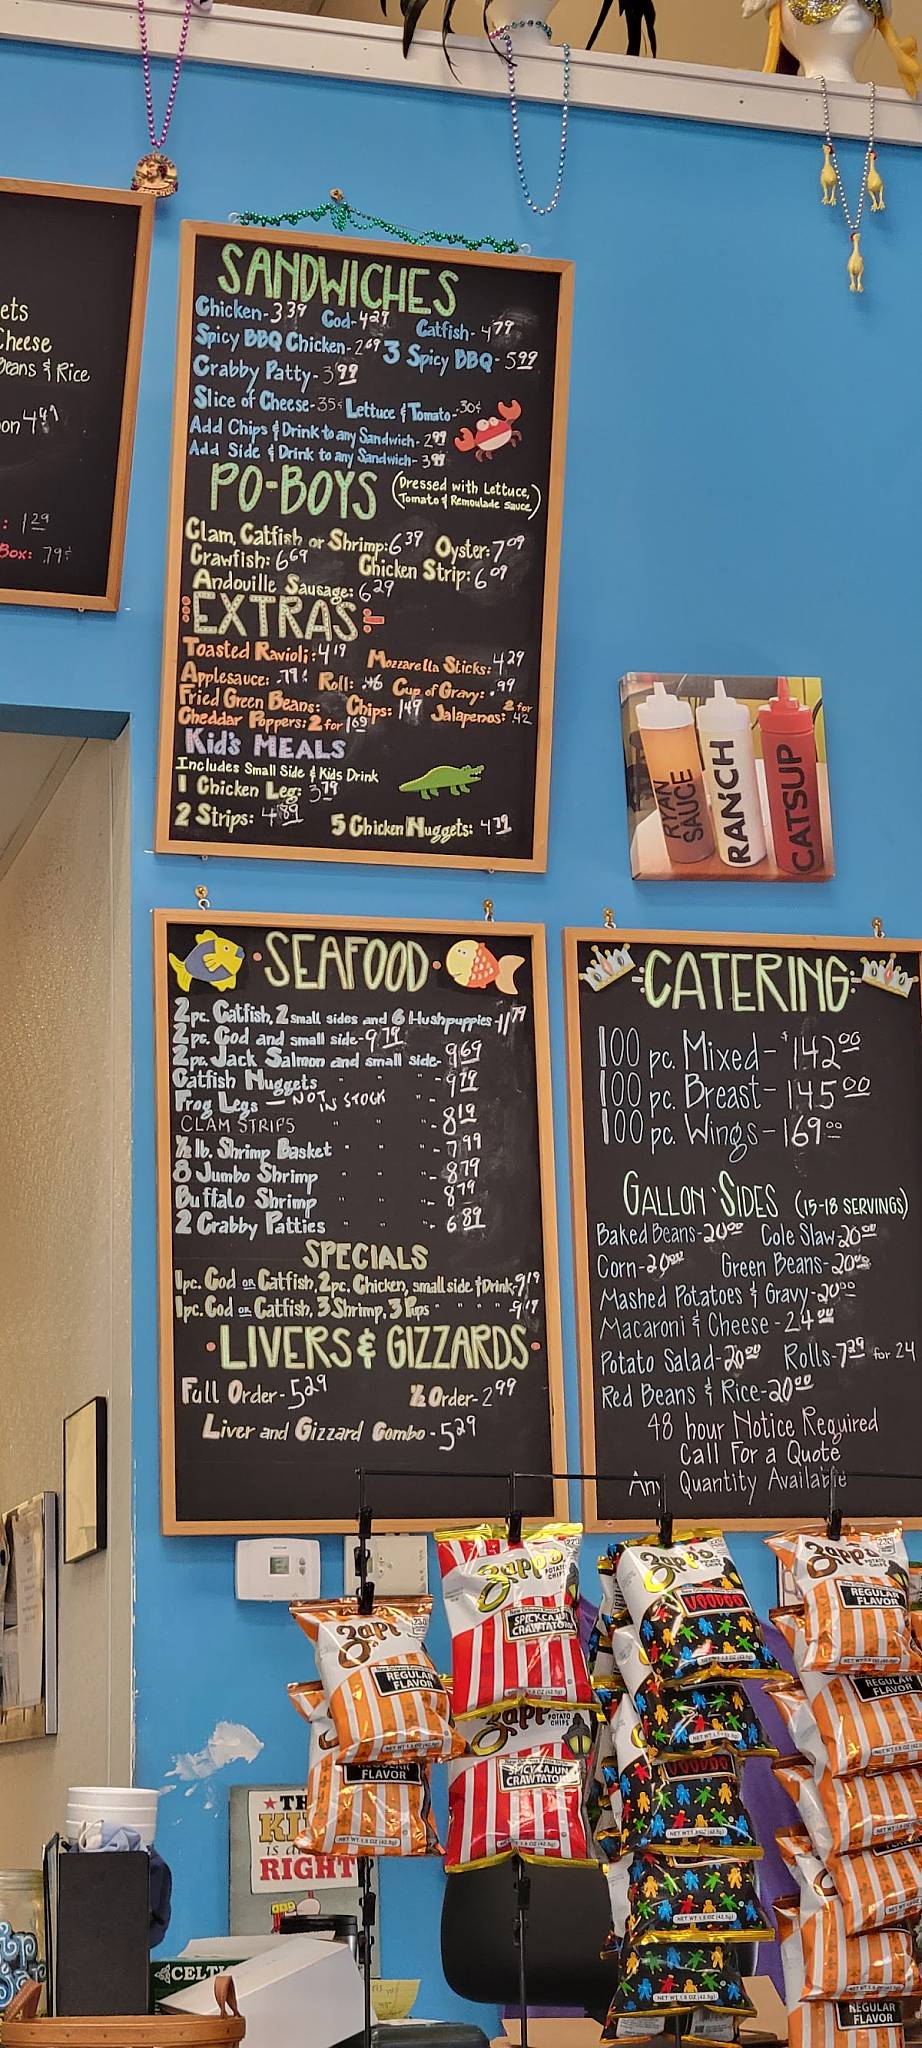 ets
Cheese
Beans & Rice
on 4
: 1 29
Box: .79¢
SANDWICHES
Chicken - 3 39 Cod - 4 29 Catfish - 4 79
Spicy BBQ Chicken - 2 69 3 Spicy BBQ - 5 99
Crabby Patty - 3 99
Slice of Cheese - 35¢ Lettuce & Tomato - 30¢
Add Chips & Drink to any Sandwich - 2 99
Add Side & Drink to any Sandwich - 3 99
PO-BOYS (Dressed with Lettuce, Tomato & Remoulade Sauce)
Clam, Catfish or Shrimp: 6 39 Oyster: 7 09
Crawfish: 6 69 Chicken Strip: 6 09
Andouille Sausage: 6 29
EXTRAS
Toasted Ravioli: 4 19 Mozzarella Sticks: 4 29
Applesauce: .79¢ Roll: .46 Cup of Gravy: .99
Fried Green Beans: Chips: 1 49 Jalapenos: 2 for .42
Cheddar Poppers: 2 for 1 69
Kid's MEALS
Includes Small Side & Kids Drink
1 Chicken Leg: 3 79
2 Strips: 4 89 5 Chicken Nuggets: 4 79
RYAN SAUCE
RANCH
CATSUP
SEAFOOD
2pc. Catfish, 2 small sides and 6 Hushpuppies - 11 79
2pc. Cod and small side - 9 79
2pc. Jack Salmon and small side - 9 69
Catfish Nuggets " " " - 9 79
Frog Legs — NOT IN STOCK "
CLAM STRIPS " " " - 8 19
½ lb. Shrimp Basket " " " - 7 99
8 Jumbo Shrimp " " " - 8 79
Buffalo Shrimp " " " - 8 79
2 Crabby Patties " " " - 6 89
SPECIALS
1pc. Cod or Catfish, 2pc. Chicken, small side & Drink - 9 19
1pc. Cod or Catfish, 3 Shrimp, 3 Pups " " " " - 9 19
LIVERS & GIZZARDS
Full Order - 5 29 ½ Order - 2 99
Liver and Gizzard Combo - 5 29
CATERING
100 pc. Mixed - $142 00
100 pc. Breast - 145 00
100 pc. Wings - 169 00
GALLON SIDES (15-18 SERVINGS)
Baked Beans - 20 00 Cole Slaw - 20 00
Corn - 20 00 Green Beans - 20 00
Mashed Potatoes & Gravy - 20 00
Macaroni & Cheese - 24 00
Potato Salad - 20 00 Rolls - 7 29 for 24
Red Beans & Rice - 20 00
48 hour Notice Required
Call For a Quote
Any Quantity Available
Zapp's
REGULAR FLAVOR
Zapp's POTATO CHIPS
SPICY CAJUN CRAWTATORS
Zapp's
VOODOO
Zapp's
REGULAR FLAVOR
REGULAR FLAVOR
FLAVOR
NET WT 1.5 OZ (42.5g)
Zapp's POTATO CHIPS
SPICY CAJUN CRAWTATORS
NET WT 1.5 OZ (42.5g)
VOODOO
NET WT 1.5 OZ (42.5g)
NET WT 1.5 OZ (42.5g)
NET WT 1.5 OZ (42.5g)
REGULAR FLAVOR
TH
KI
is a
RIGHT
CELTI